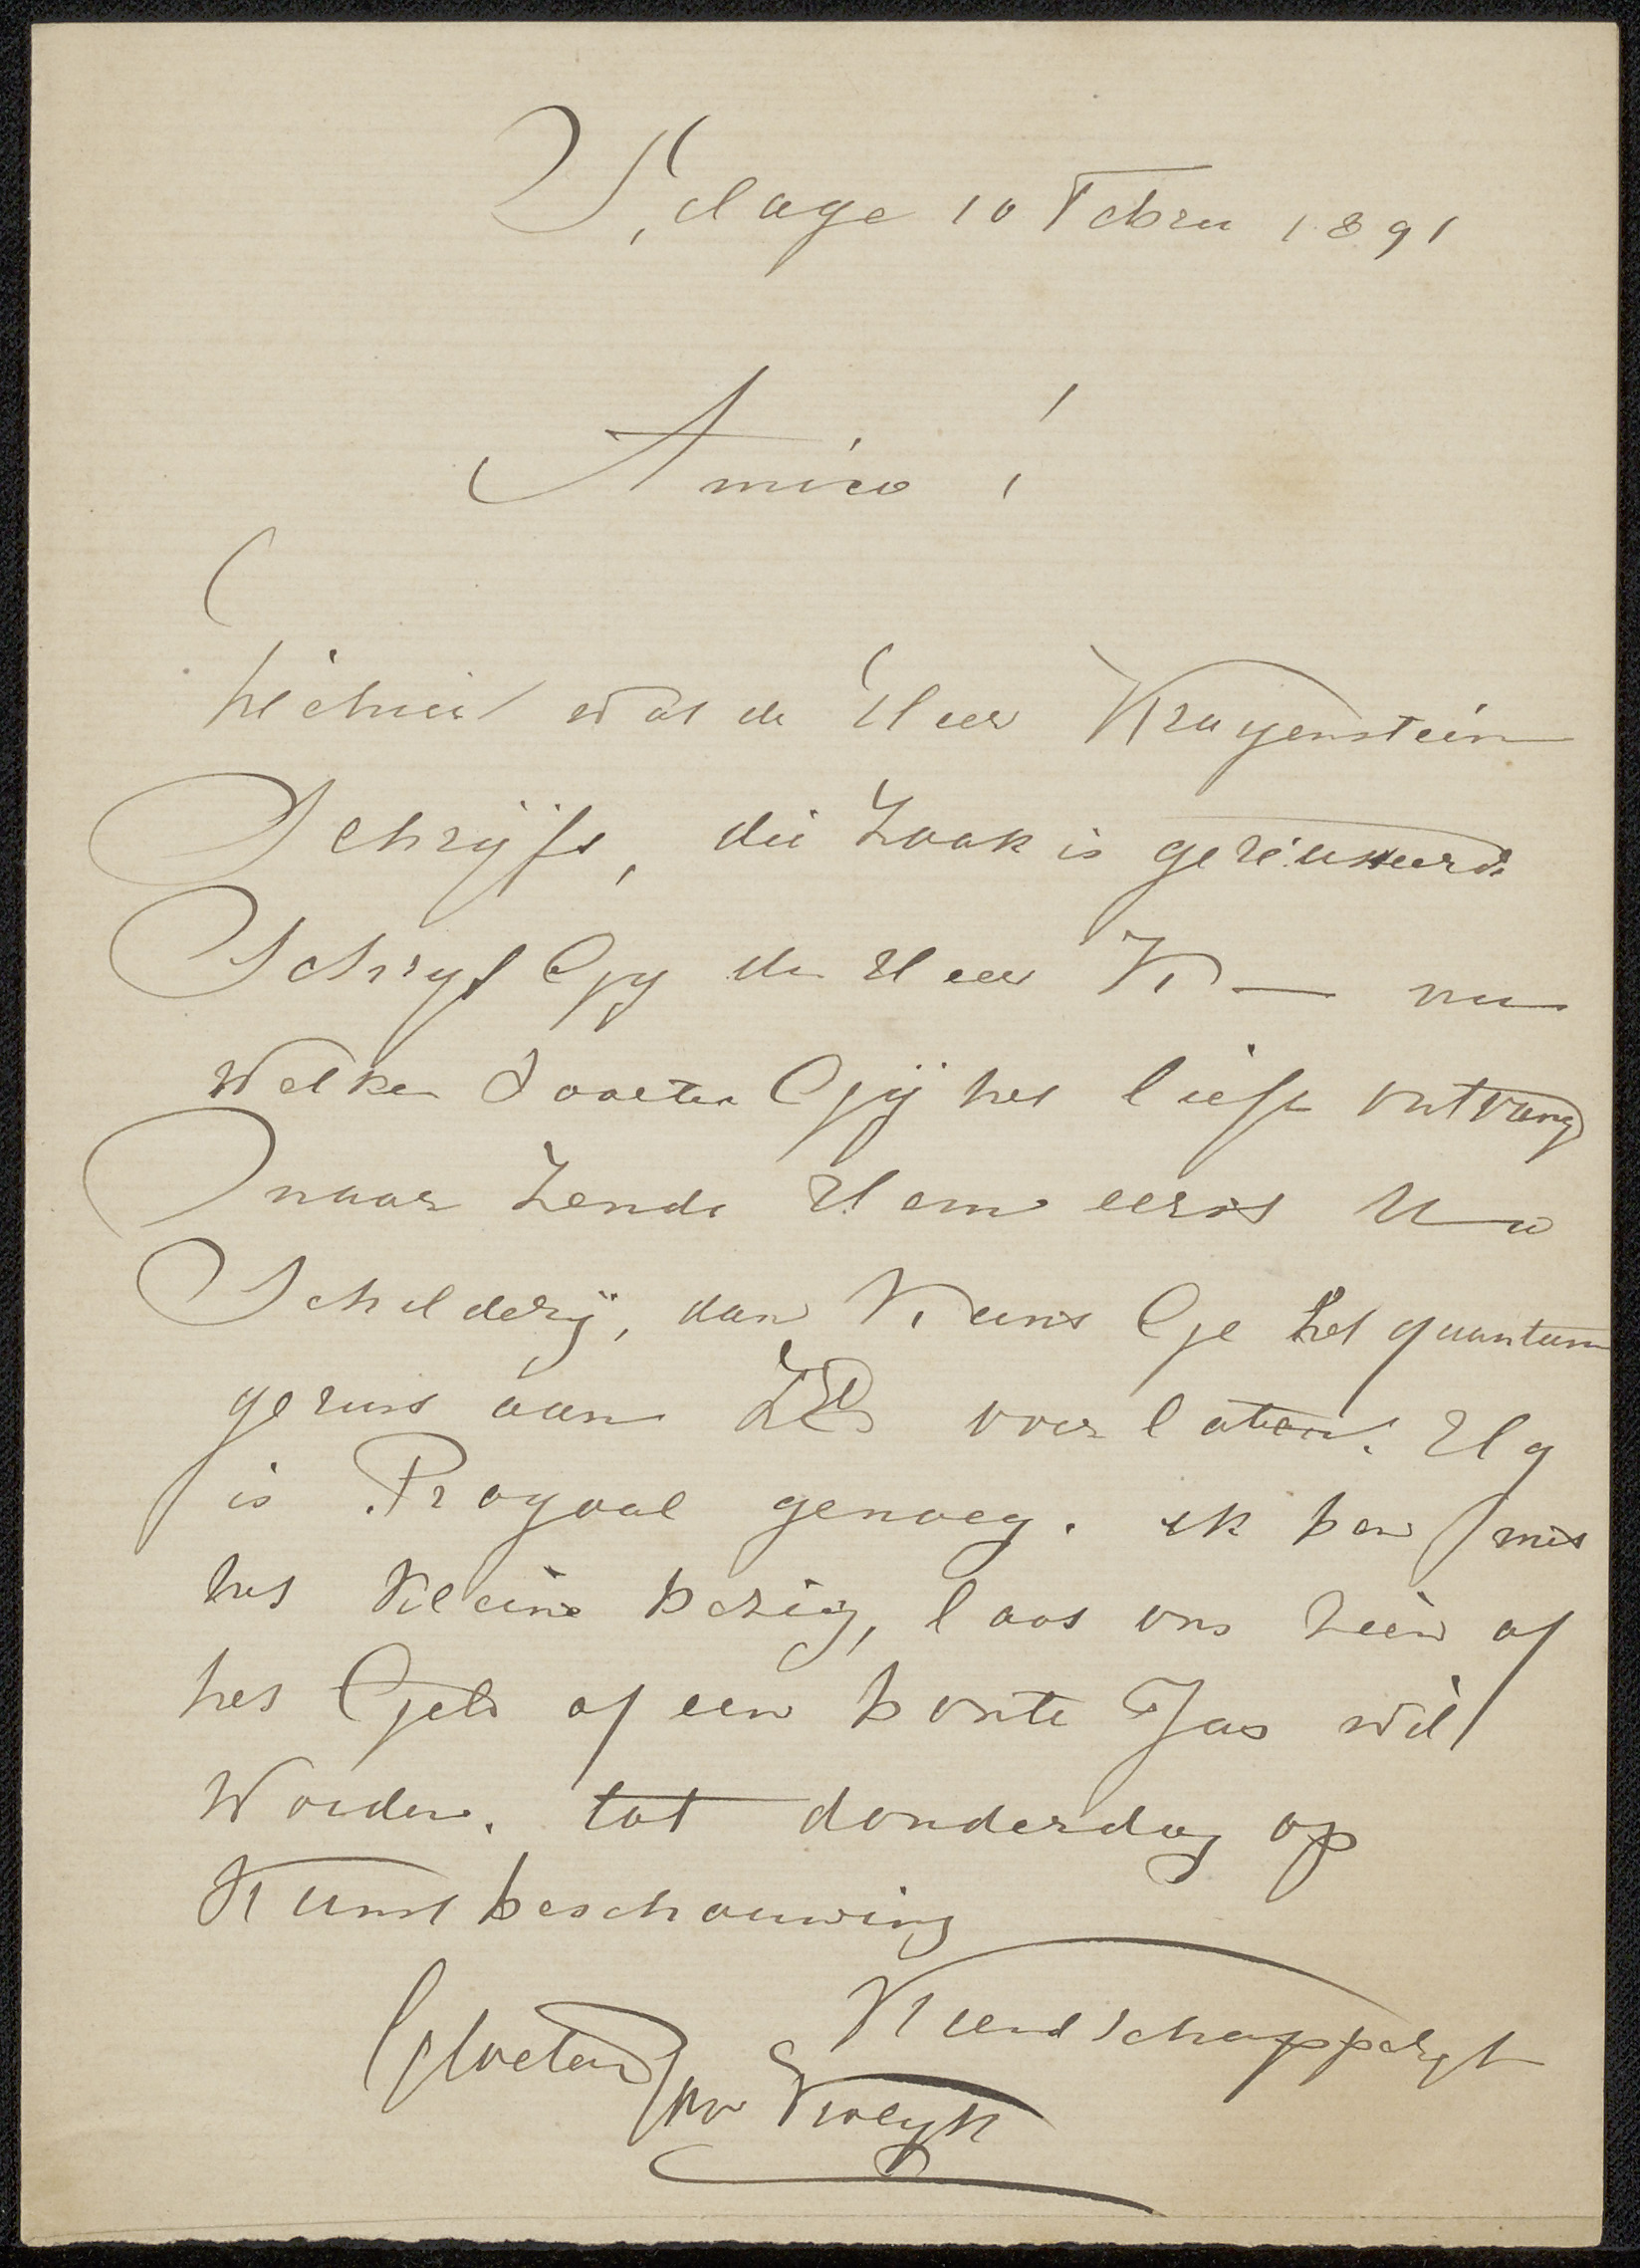 S'Hage 10 Febru 1891
Amico!
hierneven wat de Heer Kruyenstein
Schrijft, die Zaak is gereusseerd
Schryf Gy de Heer K — nu
Welke Soorten Gij het liefst ontvang
maar Zende Hem eerst Uw
Schilderij, dan Kunt Ge het quantum
gerust aan ZEd overlaten. Hy
is Royaal genoeg. ik ben met
het Kleine bezig, laat ons Zien of
het Geld of een bonte Jas wil
Worden. tot donderdag op
Kunstbeschouwing
Gloeiend Kunstschapperyt